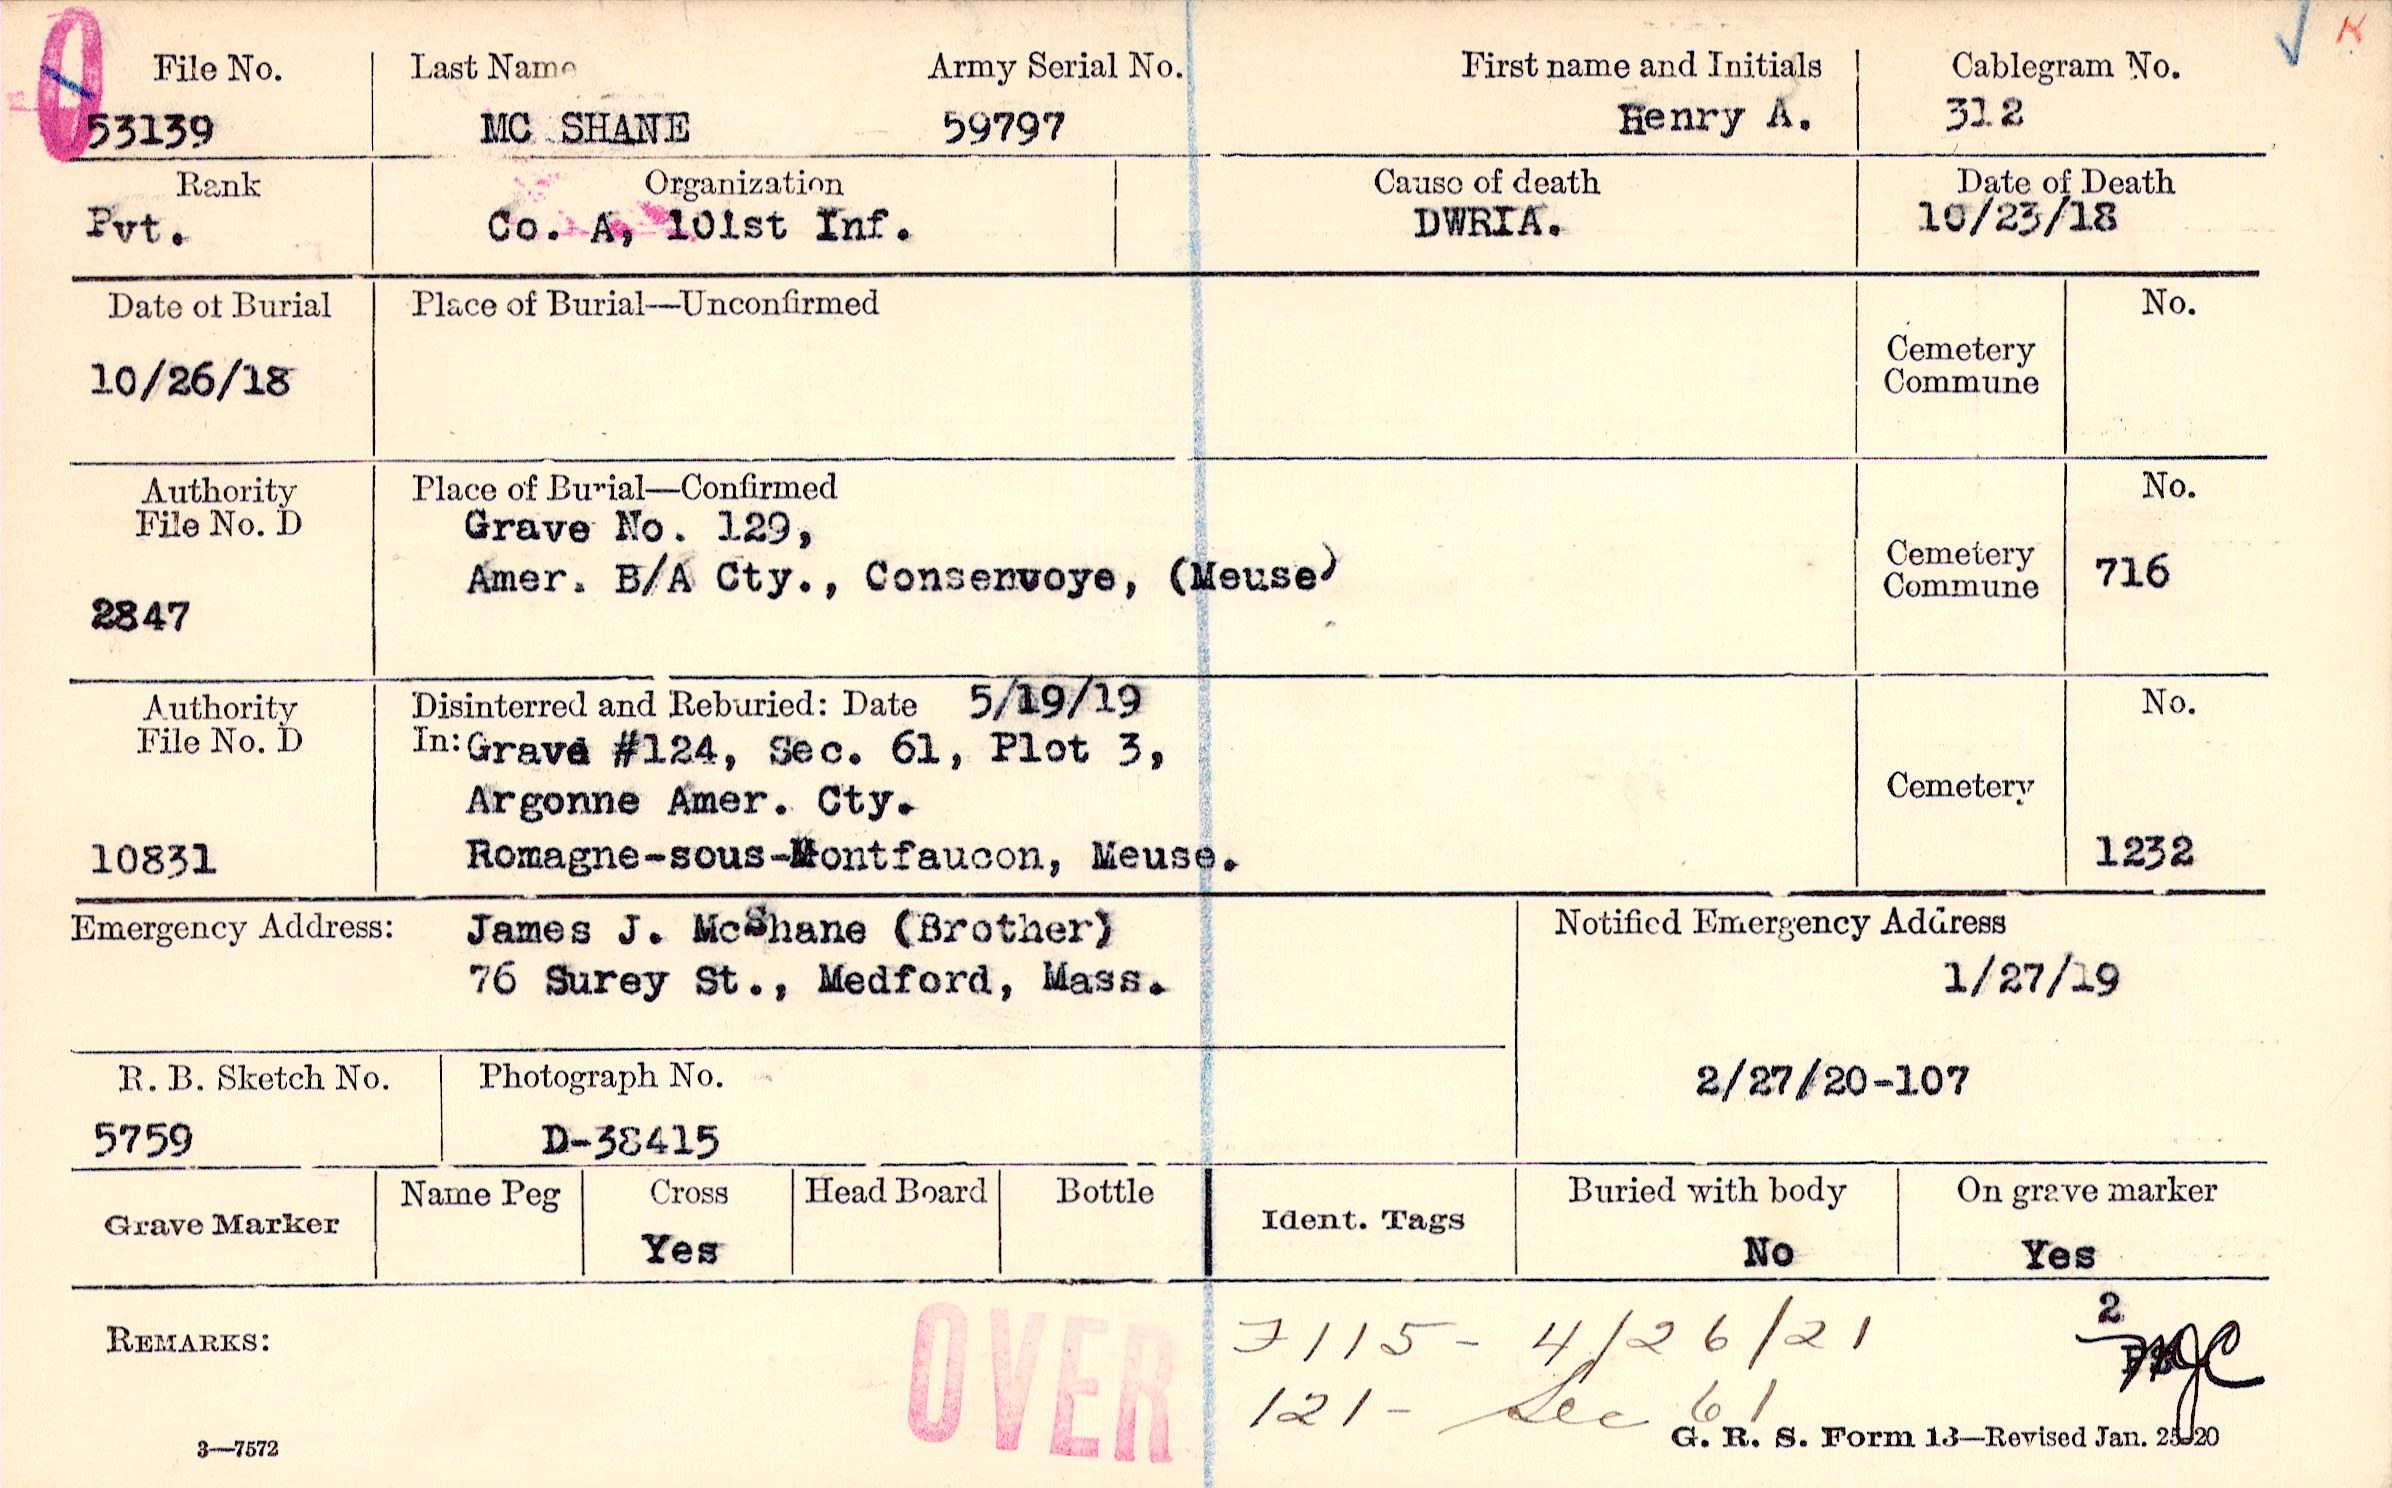 File No. Last Name Army Serial No. First name and Initials Cablegram No.
53139 MC SHANE 59797 Henry A. 312
Rank Organization Cause of death Date of Death
Pvt. Co. A, 101st Inf. DWRIA. 10/23/18
Date of Burial Place of Burial—Unconfirmed No.
Cemetery
Commune
10/26/18
Authority Place of Burial—Confirmed No.
File No. D Grave No. 129,
Amer. B/A Cty., Consenvoye, (Meuse)
Cemetery
Commune 716
2847
Authority Disinterred and Reburied: Date 5/19/19 No.
File No. D In: Grave #124, Sec. 61, Plot 3,
Cemetery
Argonne Amer. Cty.
10831 Romagne-sous-Montfaucon, Meuse. 1232
Emergency Address: James J. McShane (Brother) Notified Emergency Address
76 Surey St., Medford, Mass. 1/27/19
R. B. Sketch No. Photograph No. 2/27/20-107
5759 D-38415
Grave Marker Name Peg Cross Head Board Bottle Ident. Tags Buried with body On grave marker
Yes No Yes
2
REMARKS: OVER 7115- 4/26/21
121- Sec 61
3—7572 G. R. S. Form 13—Revised Jan. 25-20